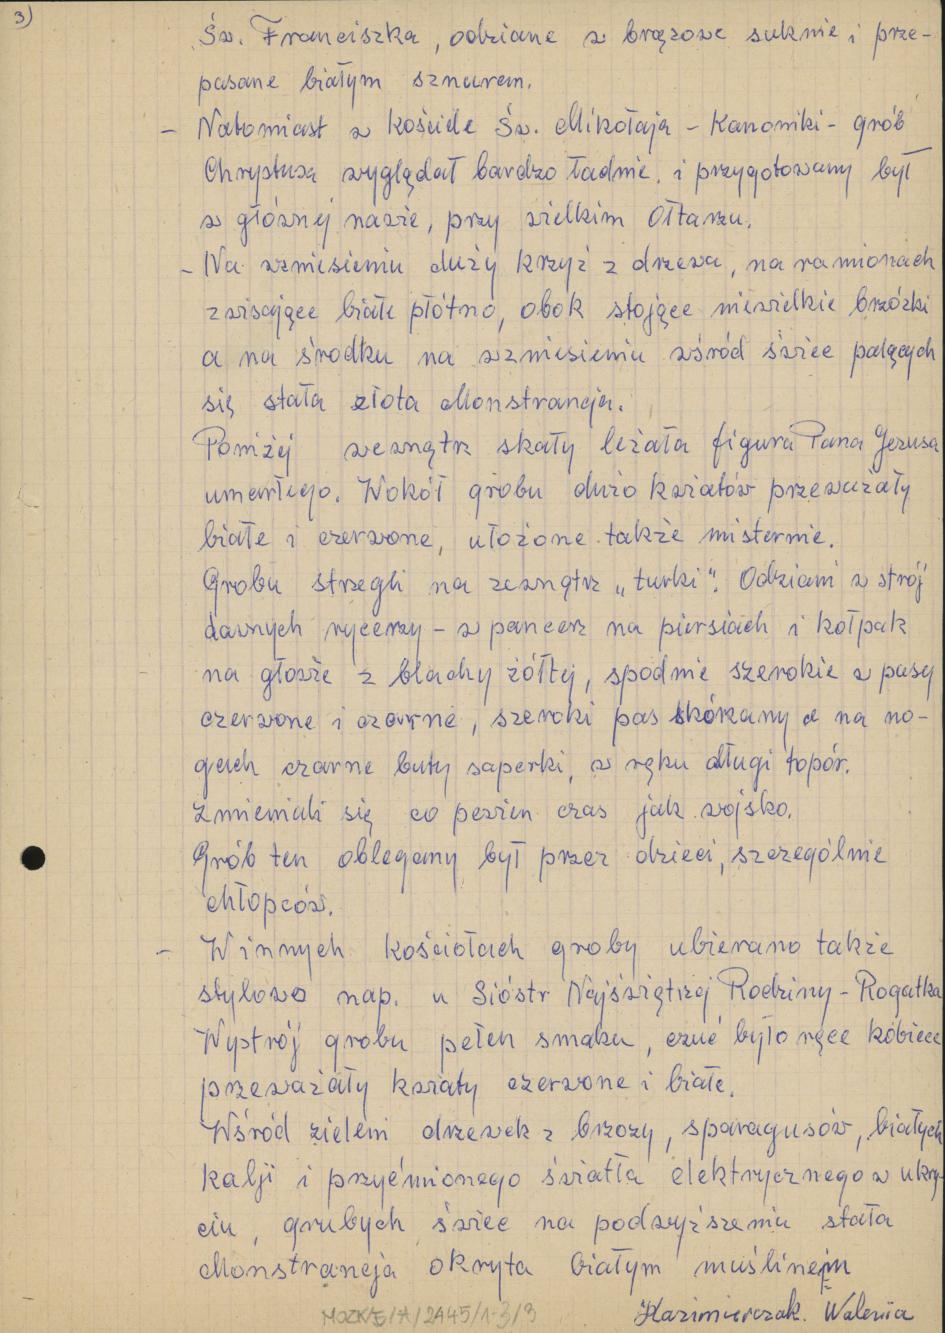 3)
Św. Franciszka, odziane w brązowe suknie i prze-
pasane białym sznurem.
- Natomiast w kościele Św. Mikołaja - Kanoniki - grób
Chrystusa wyglądał bardzo ładnie, i przygotowany był
w głównej nawie, przy wielkim Ołtarzu.
- Na wzniesieniu duży krzyż z drzewa, na ramionach
zwisające białe płótno, obok stojące niewielkie brzózki
a na środku na wzniesieniu wśród świec palących
się stała złota Monstrancja.
Poniżej wewnątrz skały leżała figura Pana Jezusa
umarłego. Wokół grobu dużo kwiatów przeważały
białe i czerwone, ułożone także misternie.
Grobu strzegli na zewnątrz „turki". Odziani w strój
dawnych rycerzy - w pancerz na piersiach i kołpak
na głowie z blachy żółtej, spodnie szerokie w pasy
czerwone i czarne, szeroki pas skórzany a na no-
gach czarne buty saperki, w ręku długi topór.
Zmieniali się co pewien czas jak wojsko.
Grób ten oblegany był przez dzieci, szczególnie
chłopców.
- W innych kościołach groby ubierano także
stylowo nap. u Sióstr Najświętszej Rodziny - Rogatka
Wystrój grobu pełen smaku, czuć było ręce kobiece
przeważały kwiaty czerwone i białe.
Wśród zieleni drzewek z brzozy, sparagusów, białych
kalji i przyćmionego światła elektrycznego w ukry-
ciu, grubych świec na podwyższeniu stała
Monstrancja okryta białym muślinem
Kazimierczak Waleria
MOZK/E/A/2445/1-3/3